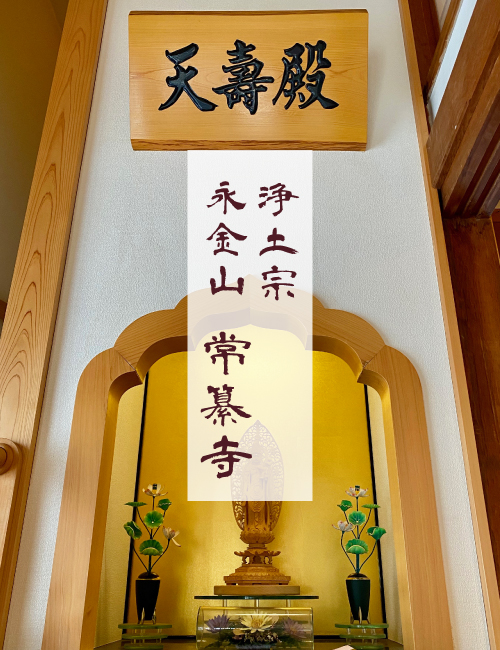 天壽殿
浄土宗
永金山 常纂寺